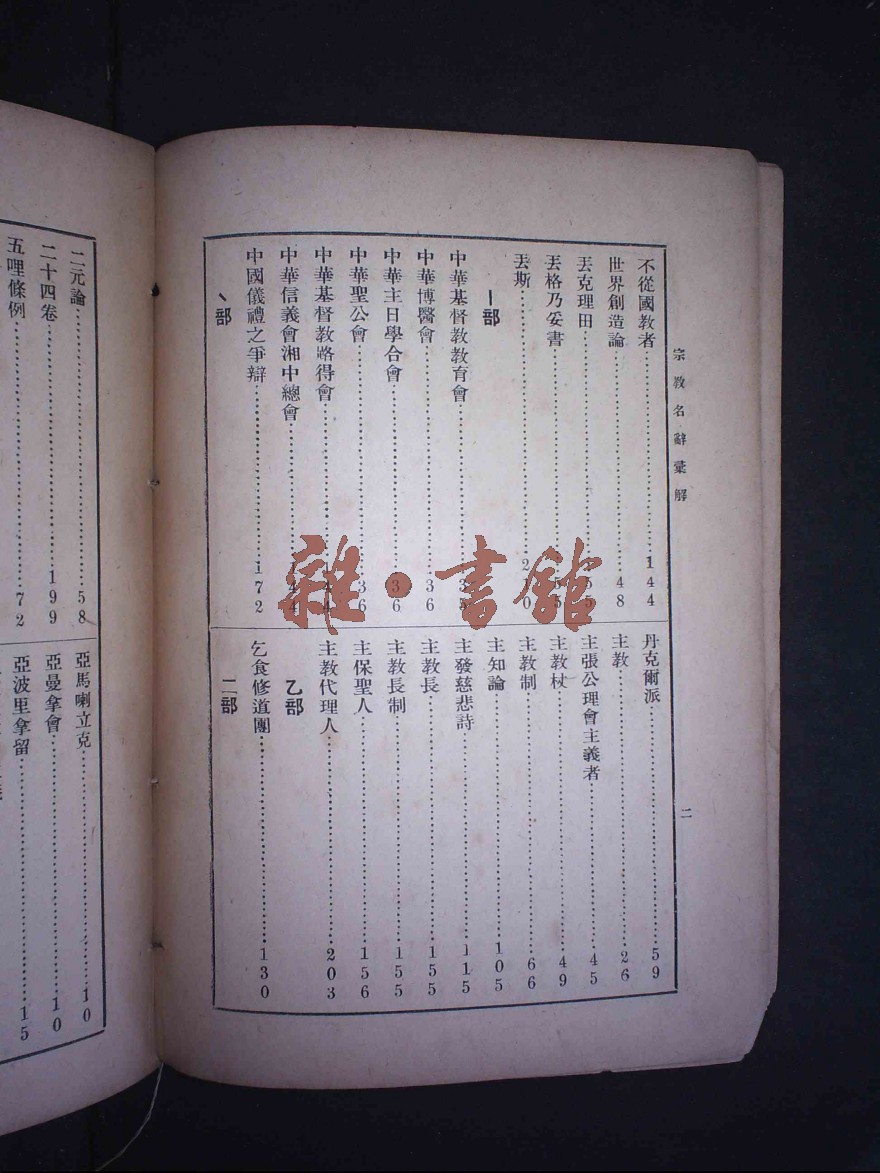 宗教名辭彙解
二
不從國教者 144
世界創造論 48
丟克理田
丟格乃妥書
丟斯
丨部
中華基督教教育會
中華博醫會 36
中華主日學合會 36
中華聖公會 36
中華基督教路得會
中華信義會湘中總會 44
中國儀禮之爭辯 172
丶部
丹克爾派 59
主教 26
主張公理會主義者 45
主教杖 49
主教制 66
主知論 105
主發慈悲詩 115
主教長 155
主教長制 155
主保聖人 156
主教代理人 203
乙部
乞食修道團 130
二部
二元論 58
二十四卷 199
五哩條例 72
亞馬喇立克 10
亞曼拿會 10
亞波里拿留 15
雜·書館